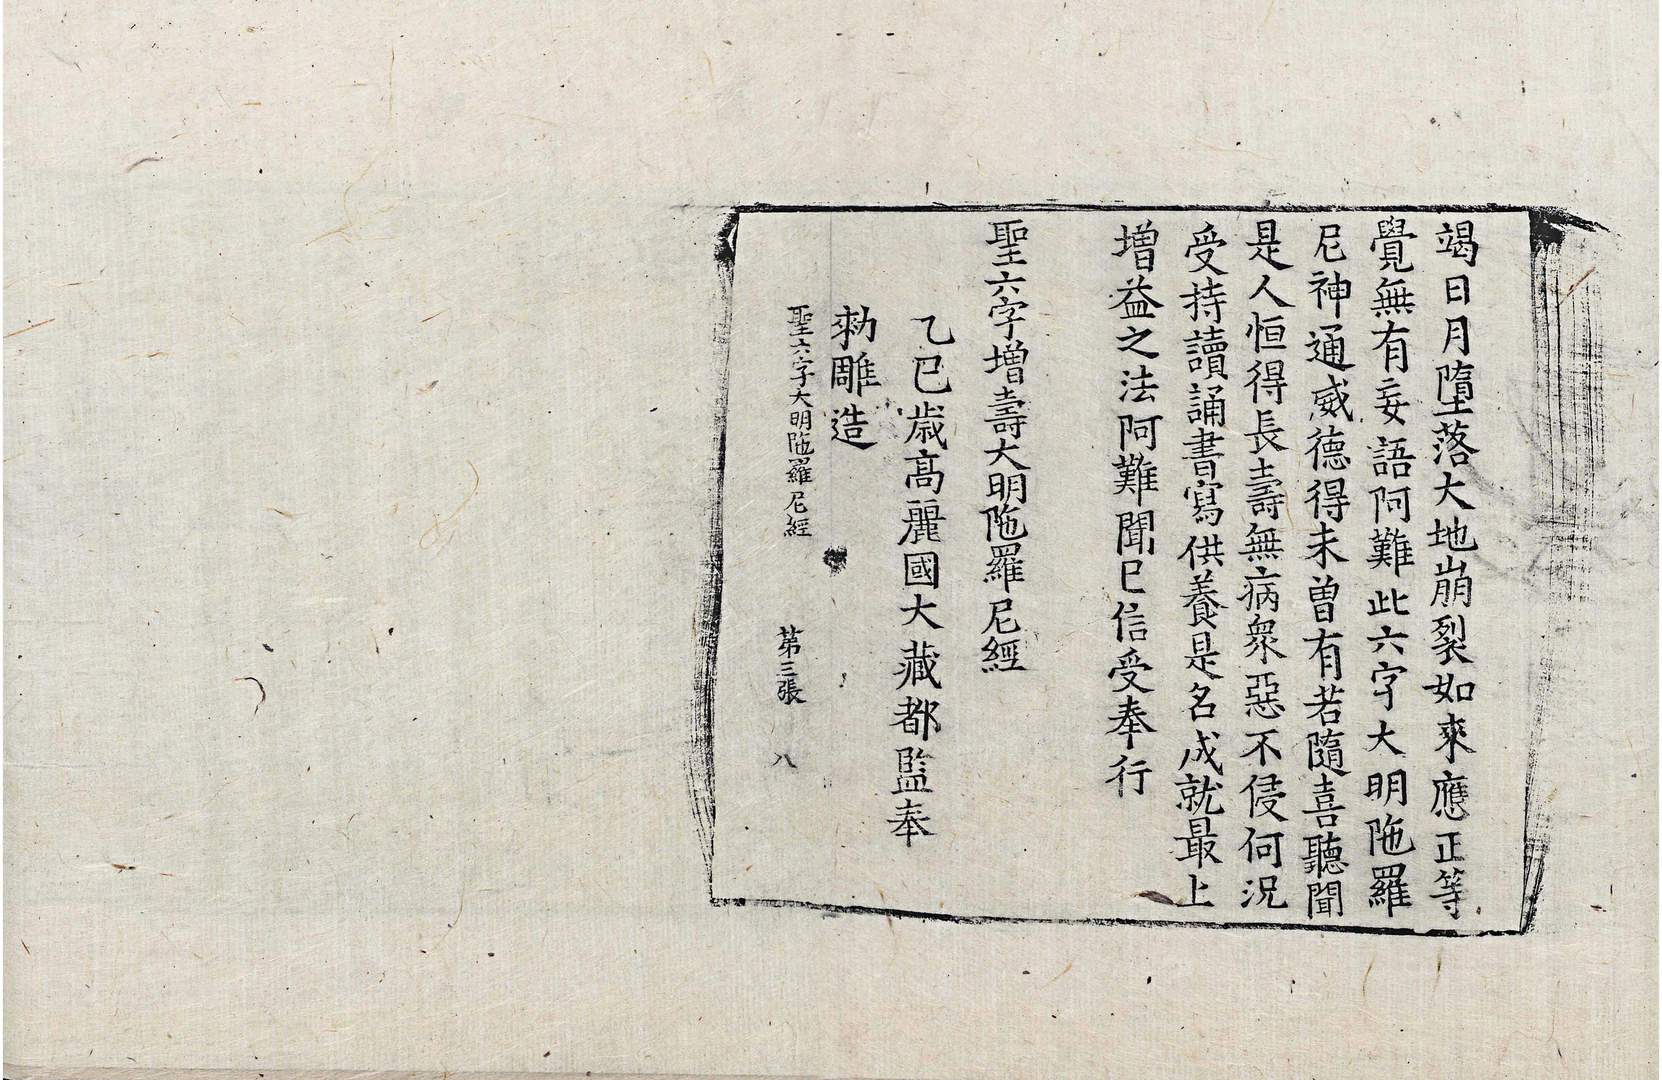 竭日月墮落大地崩裂如來應正等
覺無有妄語阿難此六字大明陁羅
尼神通威德得未曾有若隨喜聽聞
是人恒得長壽無病衆惡不侵何況
受持讀誦書寫供養是名成就最上
增益之法阿難聞已信受奉行
聖六字增壽大明陁羅尼經
乙巳歲高麗國大藏都監奉
勑雕造
聖六字大明陁羅尼經 第三張 八